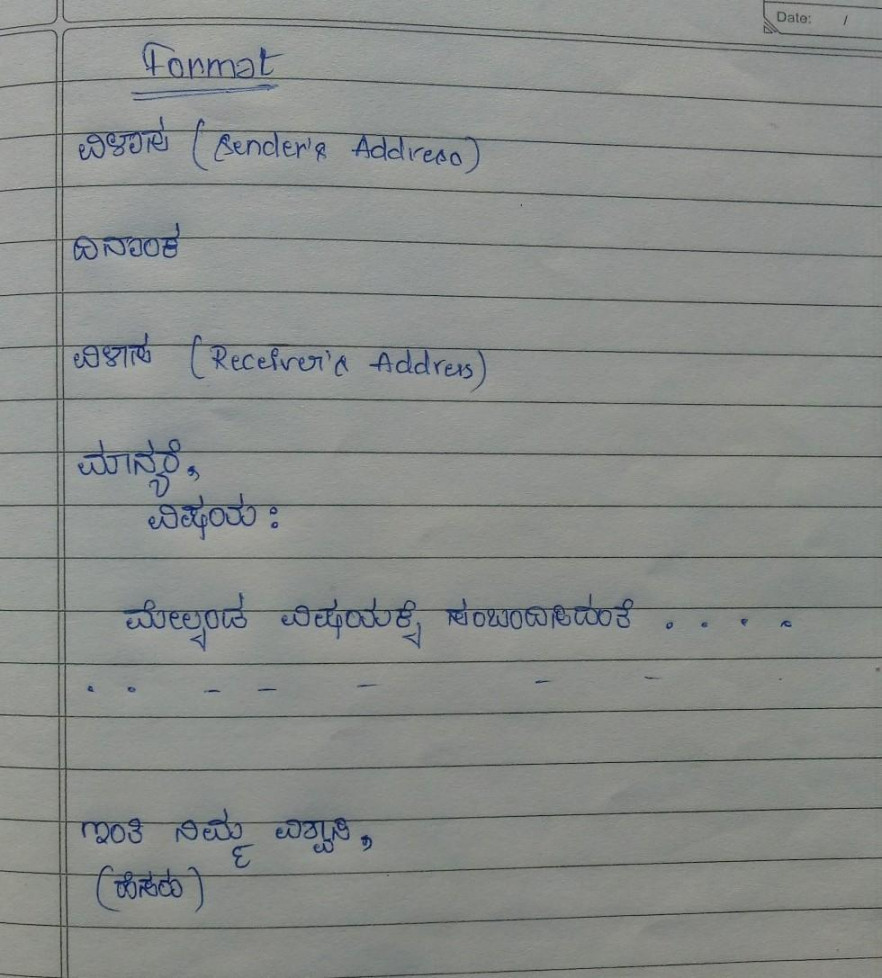 Date: /
Format
ವಿಳಾಸ (Sender's Address)
ದಿನಾಂಕ
ವಿಳಾಸ (Receiver's Address)
ಮಾನ್ಯರೆ,
ವಿಷಯ :
ಮೇಲ್ಕಂಡ ವಿಷಯಕ್ಕೆ ಸಂಬಂದಿಸಿದಂತೆ . . . .
. . - - - - -
ಇಂತಿ ನಿಮ್ಮ ವಿಶ್ವಾಸಿ,
(ಹೆಸರು)